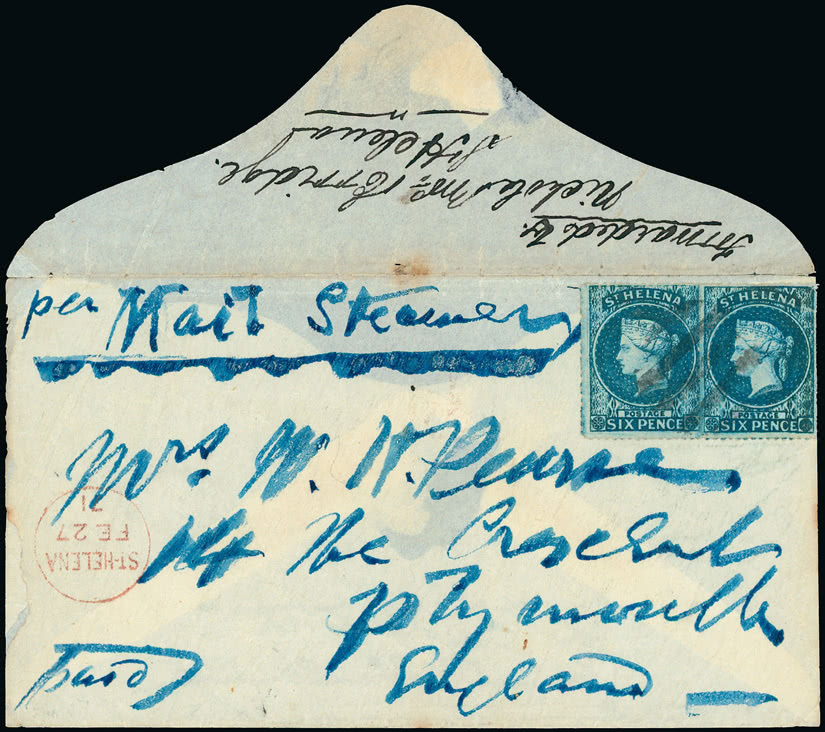 Forwarded by
Nichola Mc. Torridge.
St Helena
per Mail Steamer
ST HELENA
POSTAGE
SIX PENCE
ST HELENA
POSTAGE
SIX PENCE
Mrs W. H. Pearse
14 The Crescent
Plymouth
England
Paid
ST·HELENA
FE 27
71